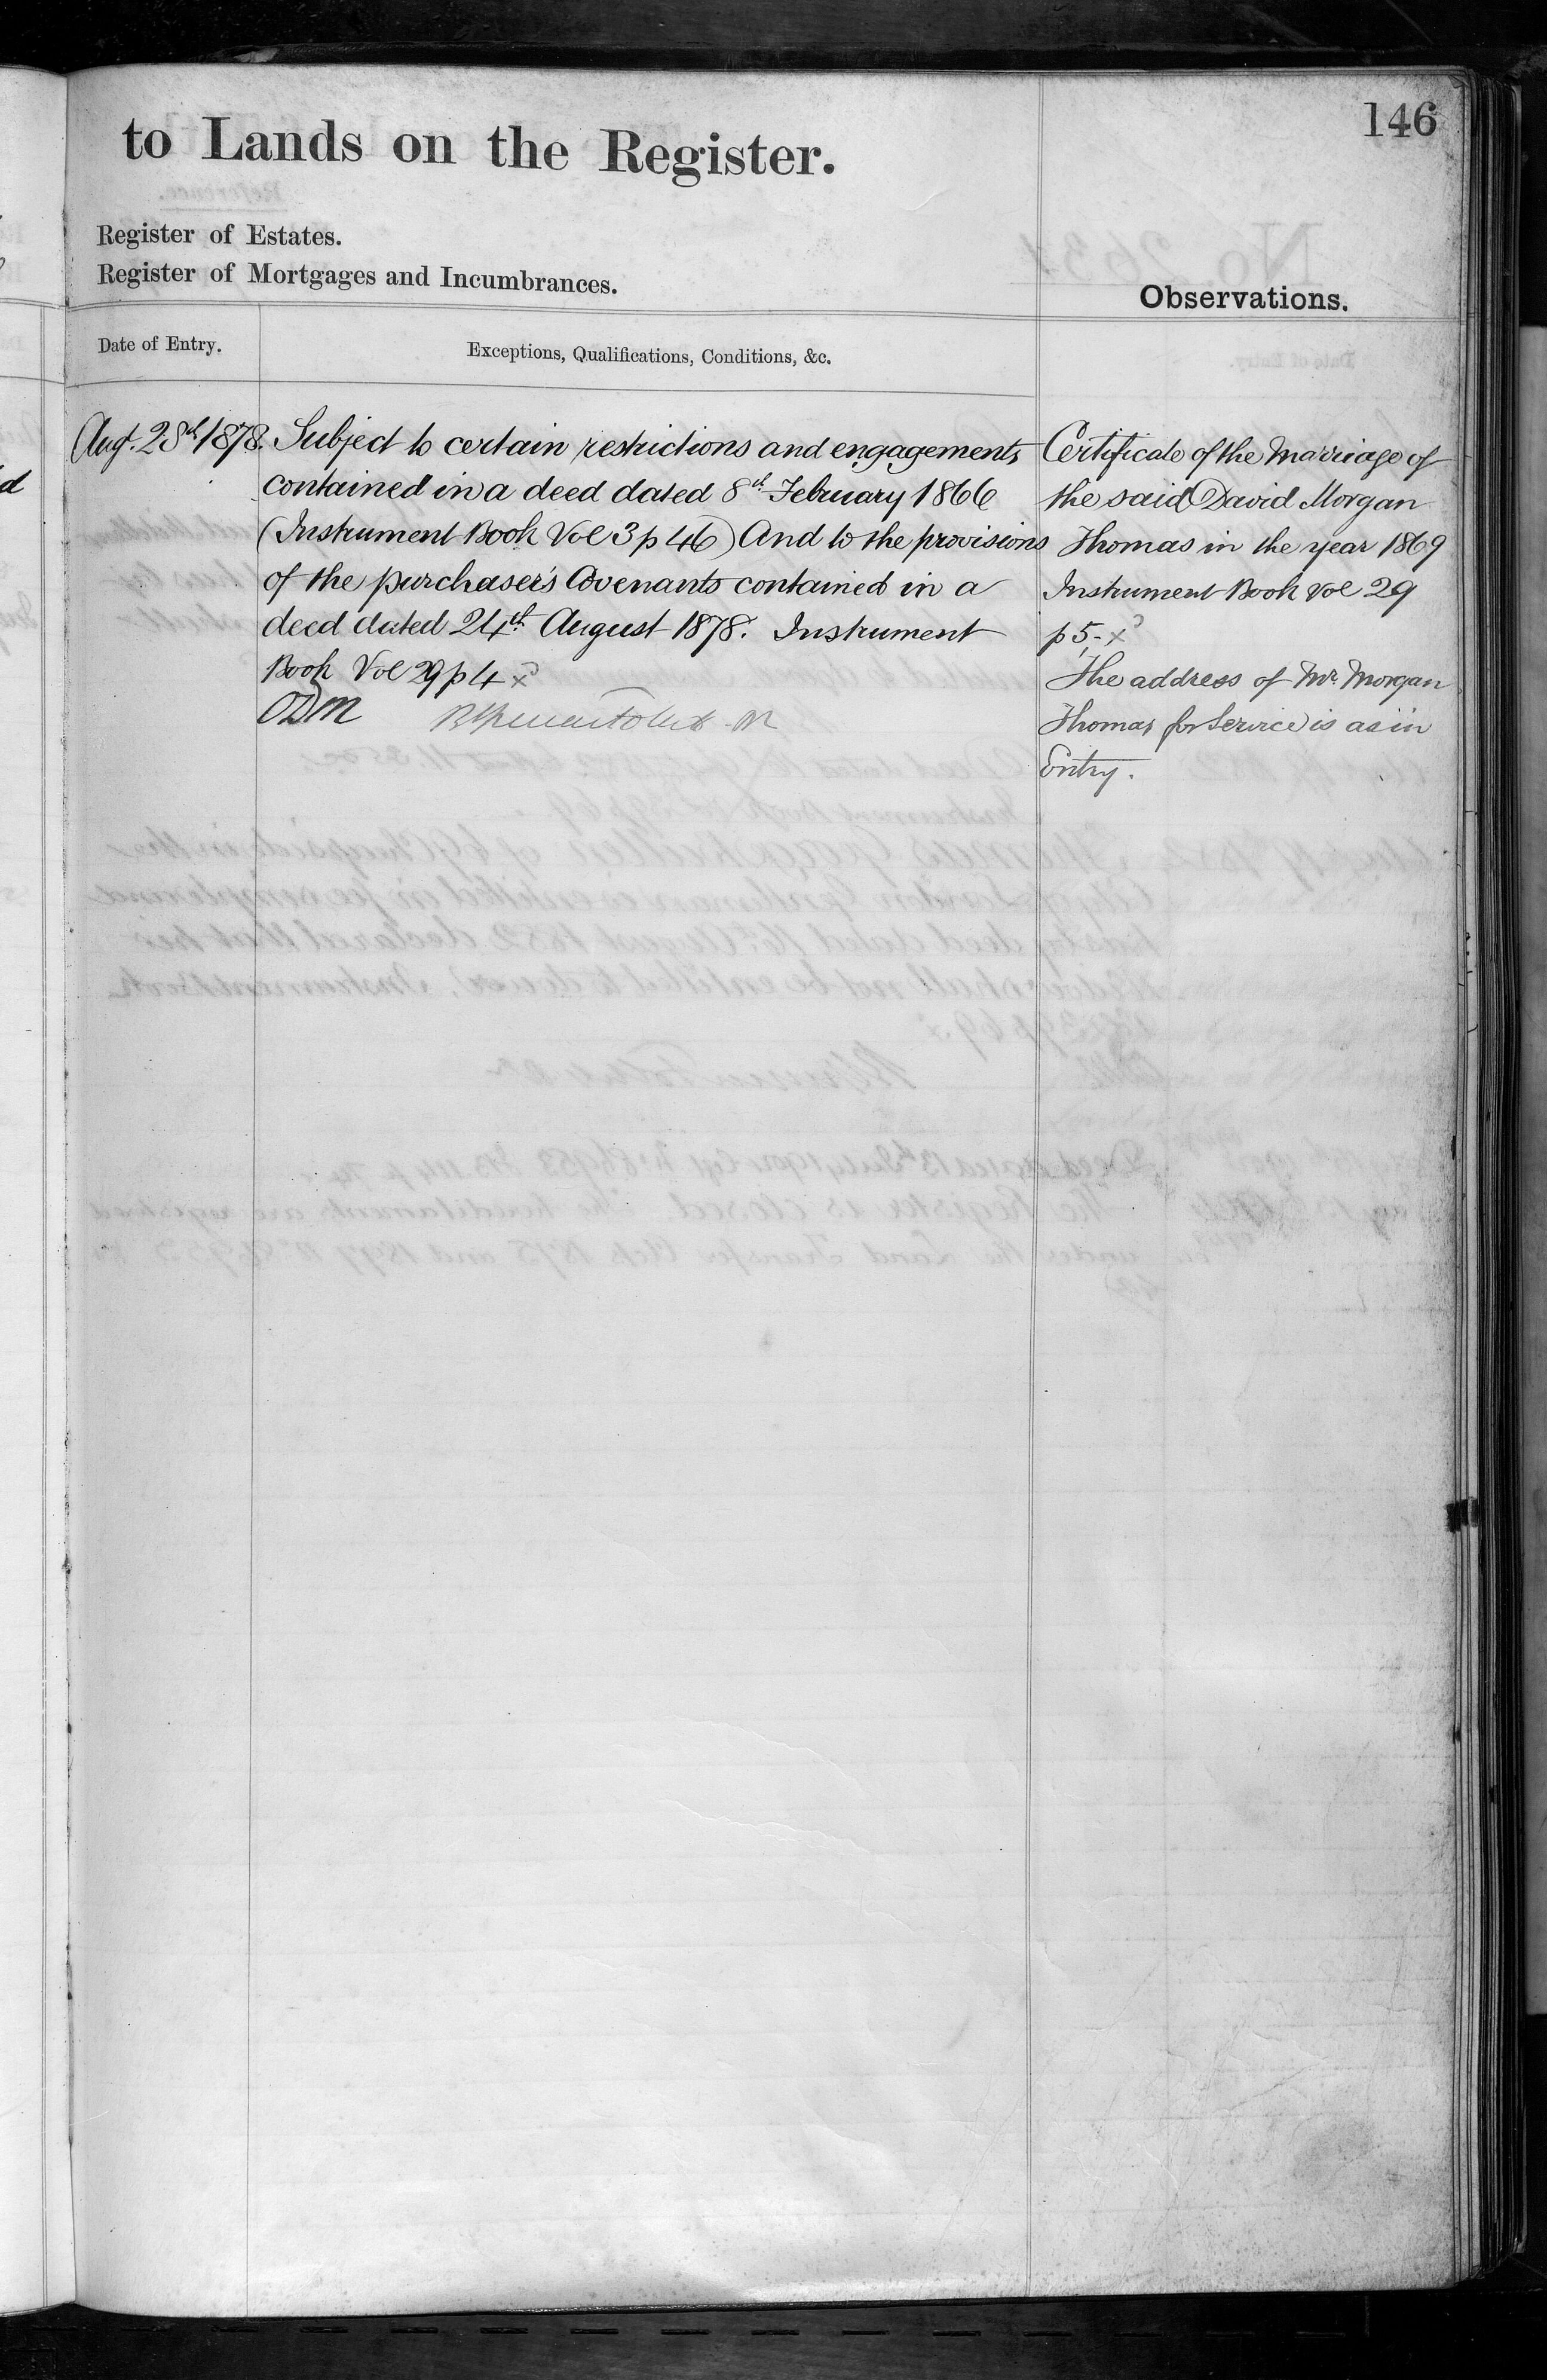 146
to Lands on the Register.
Register of Estates.
Register of Mortgages and Incumbrances.
Observations.
Date of Entry.
Exceptions, Qualifications, Conditions, &c.
Augt. 28th 1878. Subject to certain restrictions and engagements
contained in a deed dated 8th February 1866
(Instrument Book Vol 3 p 46) And to the provisions
of the purchaser's Covenants contained in a
deed dated 24th August 1878. Instrument
Book Vol 29 p 4 x
ODM
Certificate of the Marriage of
the said David Morgan
Thomas in the year 1869
Instrument Book Vol 29
p 5. x
The address of Mr. Morgan
Thomas for Service is as in
Entry.